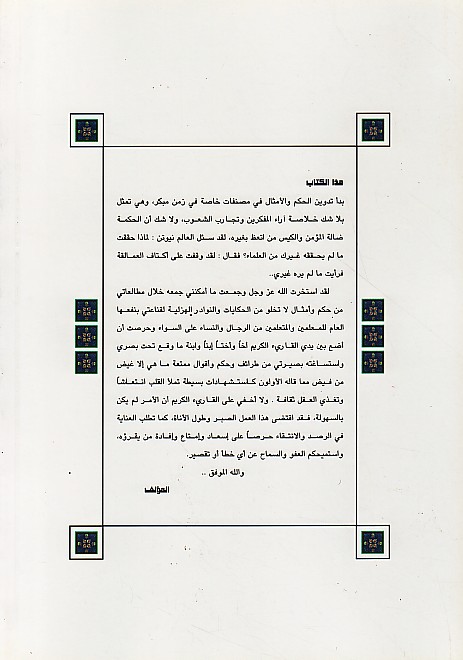 هذا الكتاب
بدأ تدوين الحكم والأمثال في مصنفات خاصة في زمن مبكر، وهي تمثل
بلا شك خلاصة أراء المفكرين وتجارب الشعوب، ولا شك أن الحكمة
ضالة المؤمن والكيس من اتعظ بغيره، لقد سئل العالم نيوتن : لماذا حققت
ما لم يحققه غيرك من العلماء؟ فقال : لقد وقفت على أكتاف العمالقة
فرأيت ما لم يره غيري..
لقد استخرت الله عز وجل وجمعت ما أمكنني جمعه خلال مطالعاتي
من حكم وأمثال لا تخلو من الحكايات والنوادر الهزلية لقناعتي بنفعها
العام للمعلمين والمتعلمين من الرجال والنساء على السواء وحرصت أن
أضع بين يدي القاريء الكريم أخاً وأختاً إبناً وابنة ما وقع تحت بصري
واستساغته بصيرتي من طرائف وحكم وأقوال ممتعة ما هي إلا غيض
من فيض مما قاله الأولون كاستشهادات بسيطة تملأ القلب انتعاشاً
وتغذي العقل ثقافة . ولا أخفي على القاريء الكريم أن الأمر لم يكن
بالسهولة، فقد اقتضى هذا العمل الصبر وطول الأناة، كما تطلب العناية
في الرصد والانتقاء حرصاً على إسعاد وإمتاع وإفادة من يقرؤه،
واستميحكم العفو والسماح عن أي خطأ أو تقصير.
والله الموفق ..
المؤلف